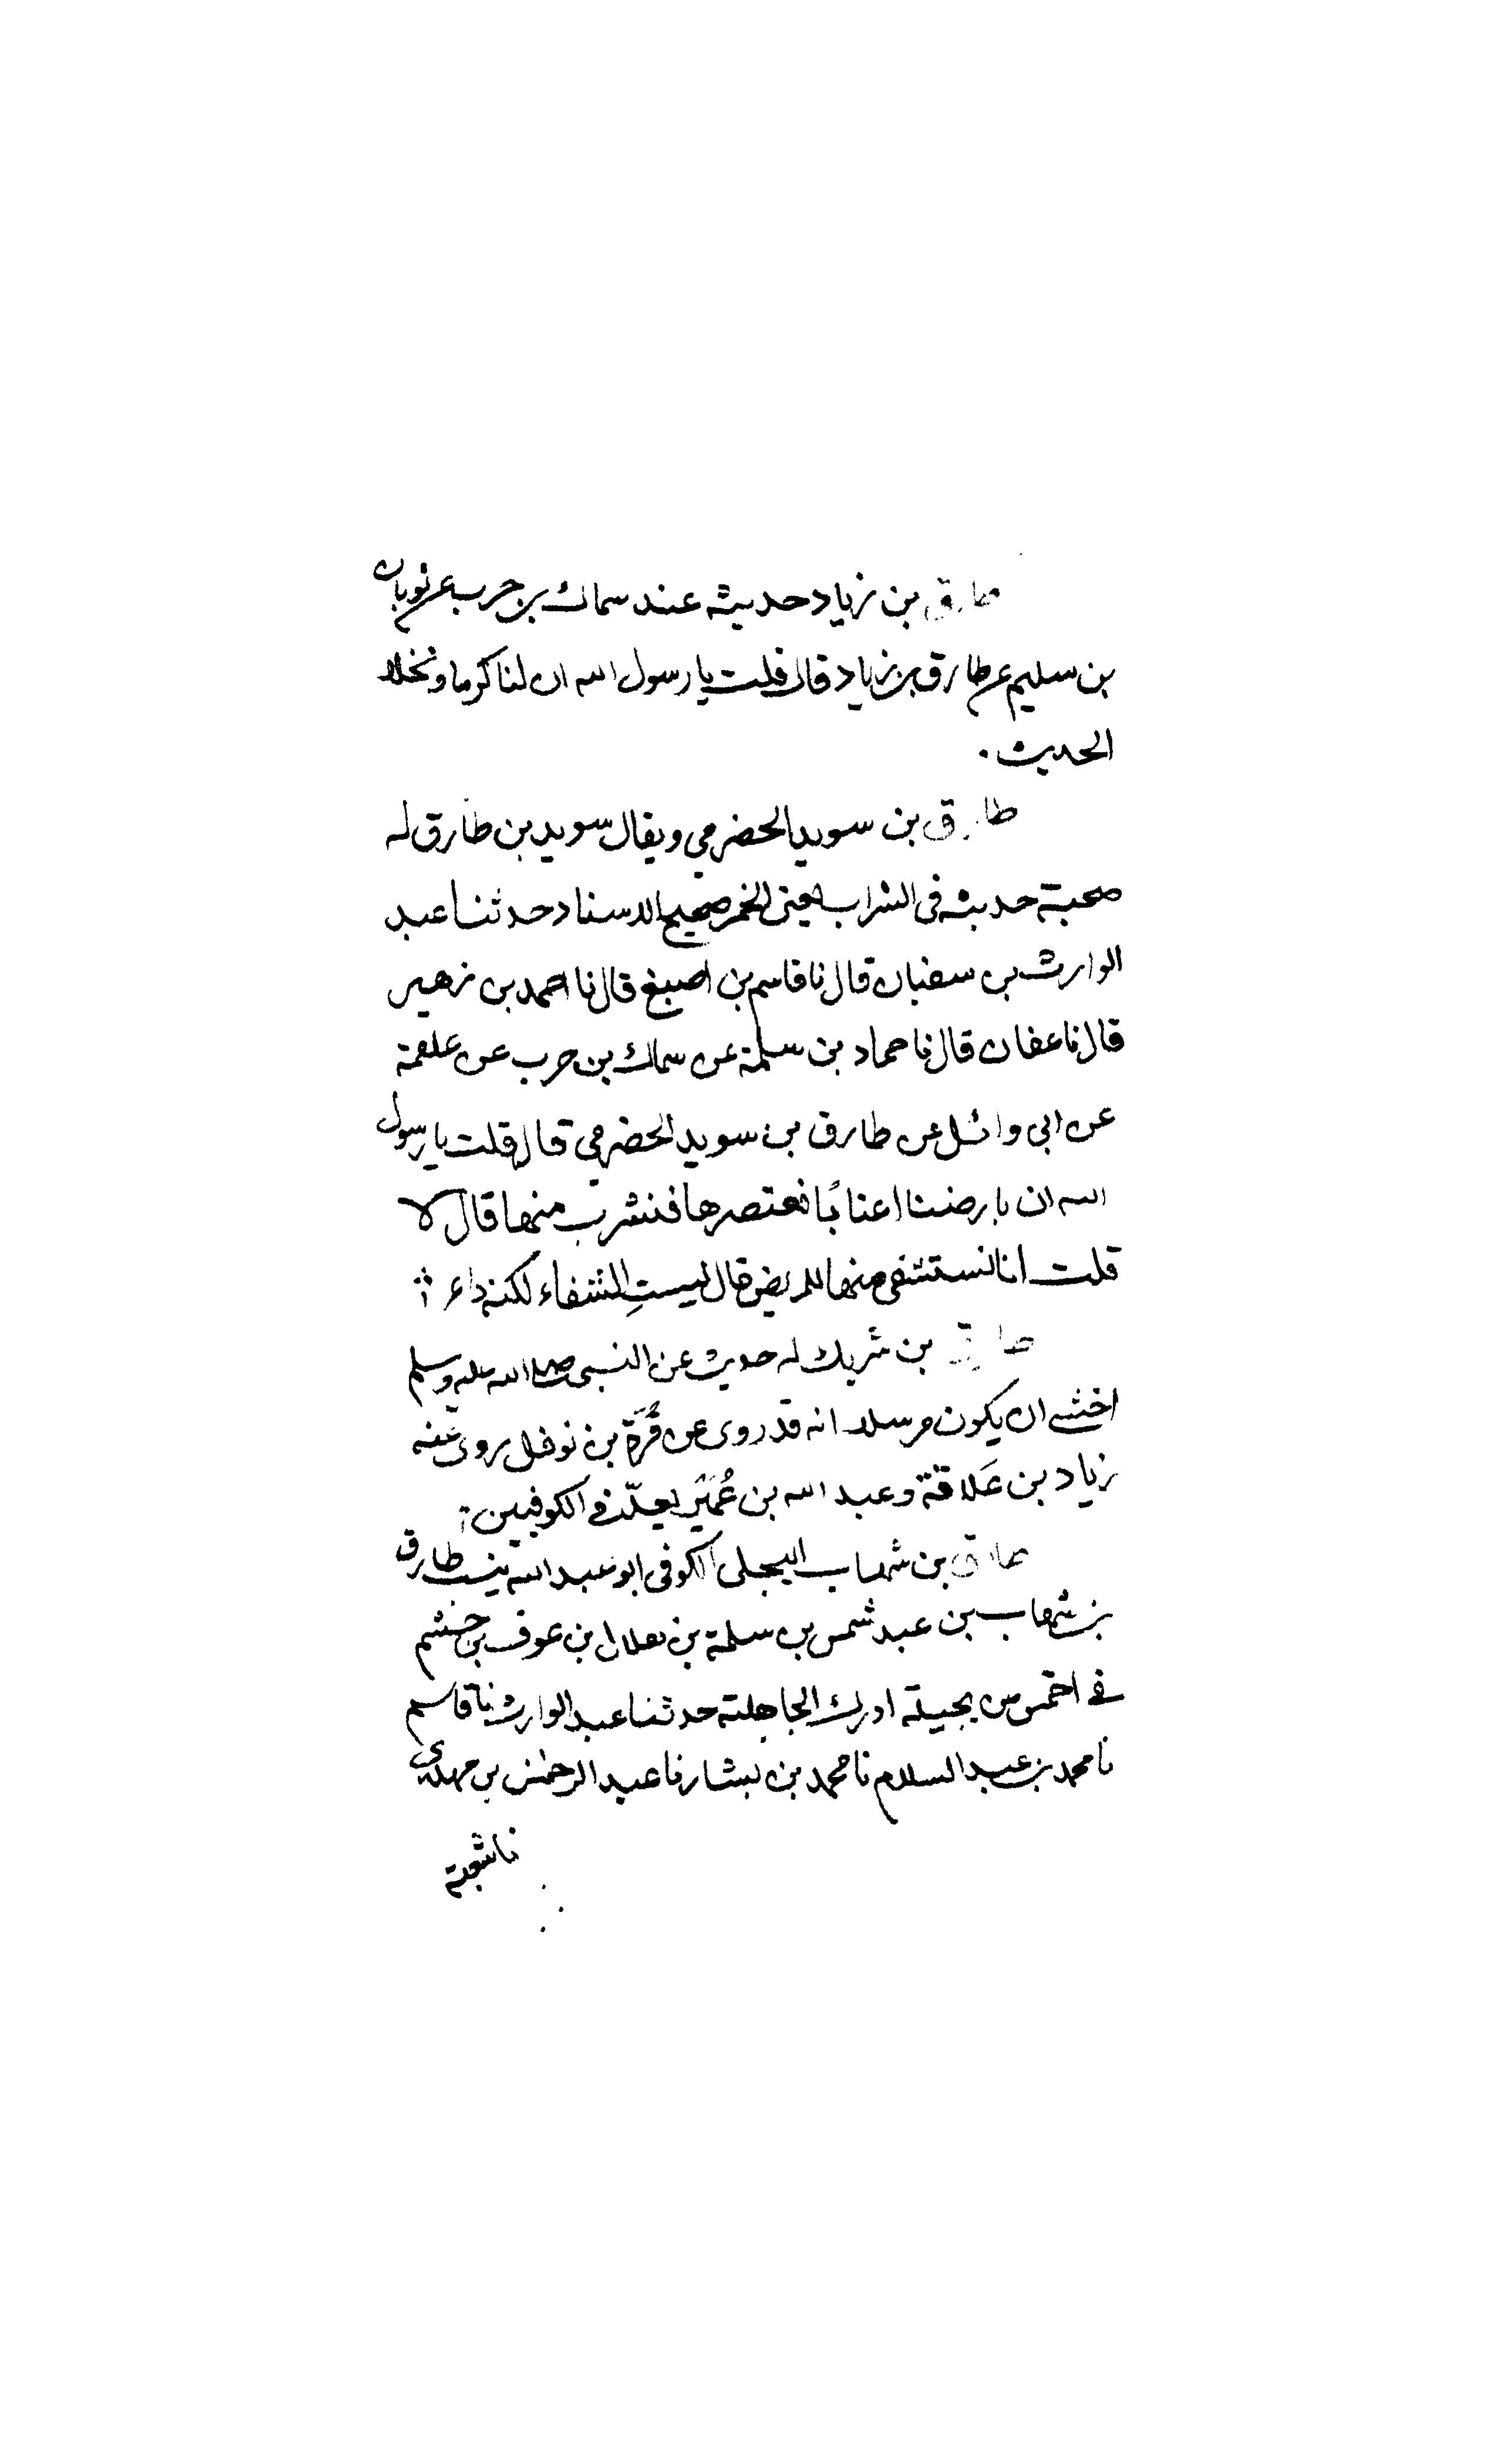 طارق بن زياد حديثه عند سماك بن حرب عن ثوبان
بن سليم عن طارق بن زياد قال قلت يا رسول الله ان لنا كرما ونخلا
الحديث .
طارق بن سويد الحضرمي ويقال سويد بن طارق له
صحبة حديثه في الشراب يعني الخمر صحيح الاسناد حدثنا عبد
الوارث بن سفيان قال نا قاسم بن اصبغ قال نا احمد بن زهير
قال نا عفان قال نا حماد بن سلمة عن سماك بن حرب عن علقمة
عن ابي وائل عن طارق بن سويد الحضرمي قال قلت يا رسول
الله ان بارضنا اعنابًا نعتصرها فنشرب منها قال لا
قلت انا نستشفي منها للمريض قال ليستِ الشفاء لكنه داء
طارق بن شريك له حديث عن النبي صلى الله عليه وسلم
اخشى ان يكون مرسلا انه قد روى عن قُرَّة بن نوفل روى عنه
زياد بن عَلاقة وعبد الله بن عُمَيْر يعدّ في الكوفيين
طارق بن شهاب البجلي الكوفي ابو عبد الله ينسب طارق
بن شهاب بن عبد شمس بن سلمة بن هلال بن عوف بن خيثم
في احمس من بجيلة ادرك الجاهلية حدثنا عبد الوارث نا قاسم
نا محمد بن عبد السلام نا محمد بن بشار نا عبد الرحمن بن مهدي
نا شعبة